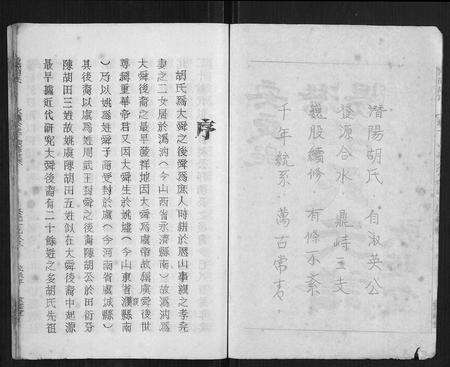 潛陽胡氏 自淑英公
從源合水 鼎峙三支
幾股續修 有條不紊
千年統系 萬古常青
序
胡氏爲大舜之後舜爲庶人時耕於歷山事親之孝堯
妻之二女居於潙汭(今山西省永濟縣南)故潙汭爲
大舜後裔之最早發祥地因大舜爲虞帝故稱虞舜後世
尊稱重華帝君又因大舜生於姚墟(今山東省濮縣南
)乃以姚爲姓舜子商受封於虞(今河南省虞城縣)
其後裔以虞爲姓周武王封舜之後裔陳胡公於田衍分
陳胡田三姓故姚虞陳胡田五姓似在大舜後裔中起源
最早據近代研究大舜後裔有二十餘姓之多胡氏先祖